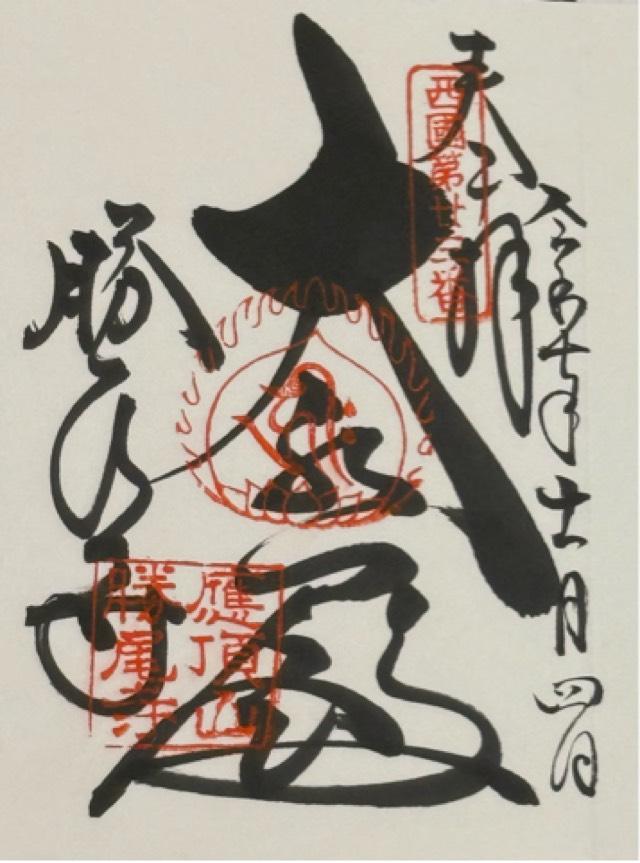 令和七年十一月四日
奉拝
西國第廿三番
大悲殿
勝尾寺
應頂山
勝尾寺